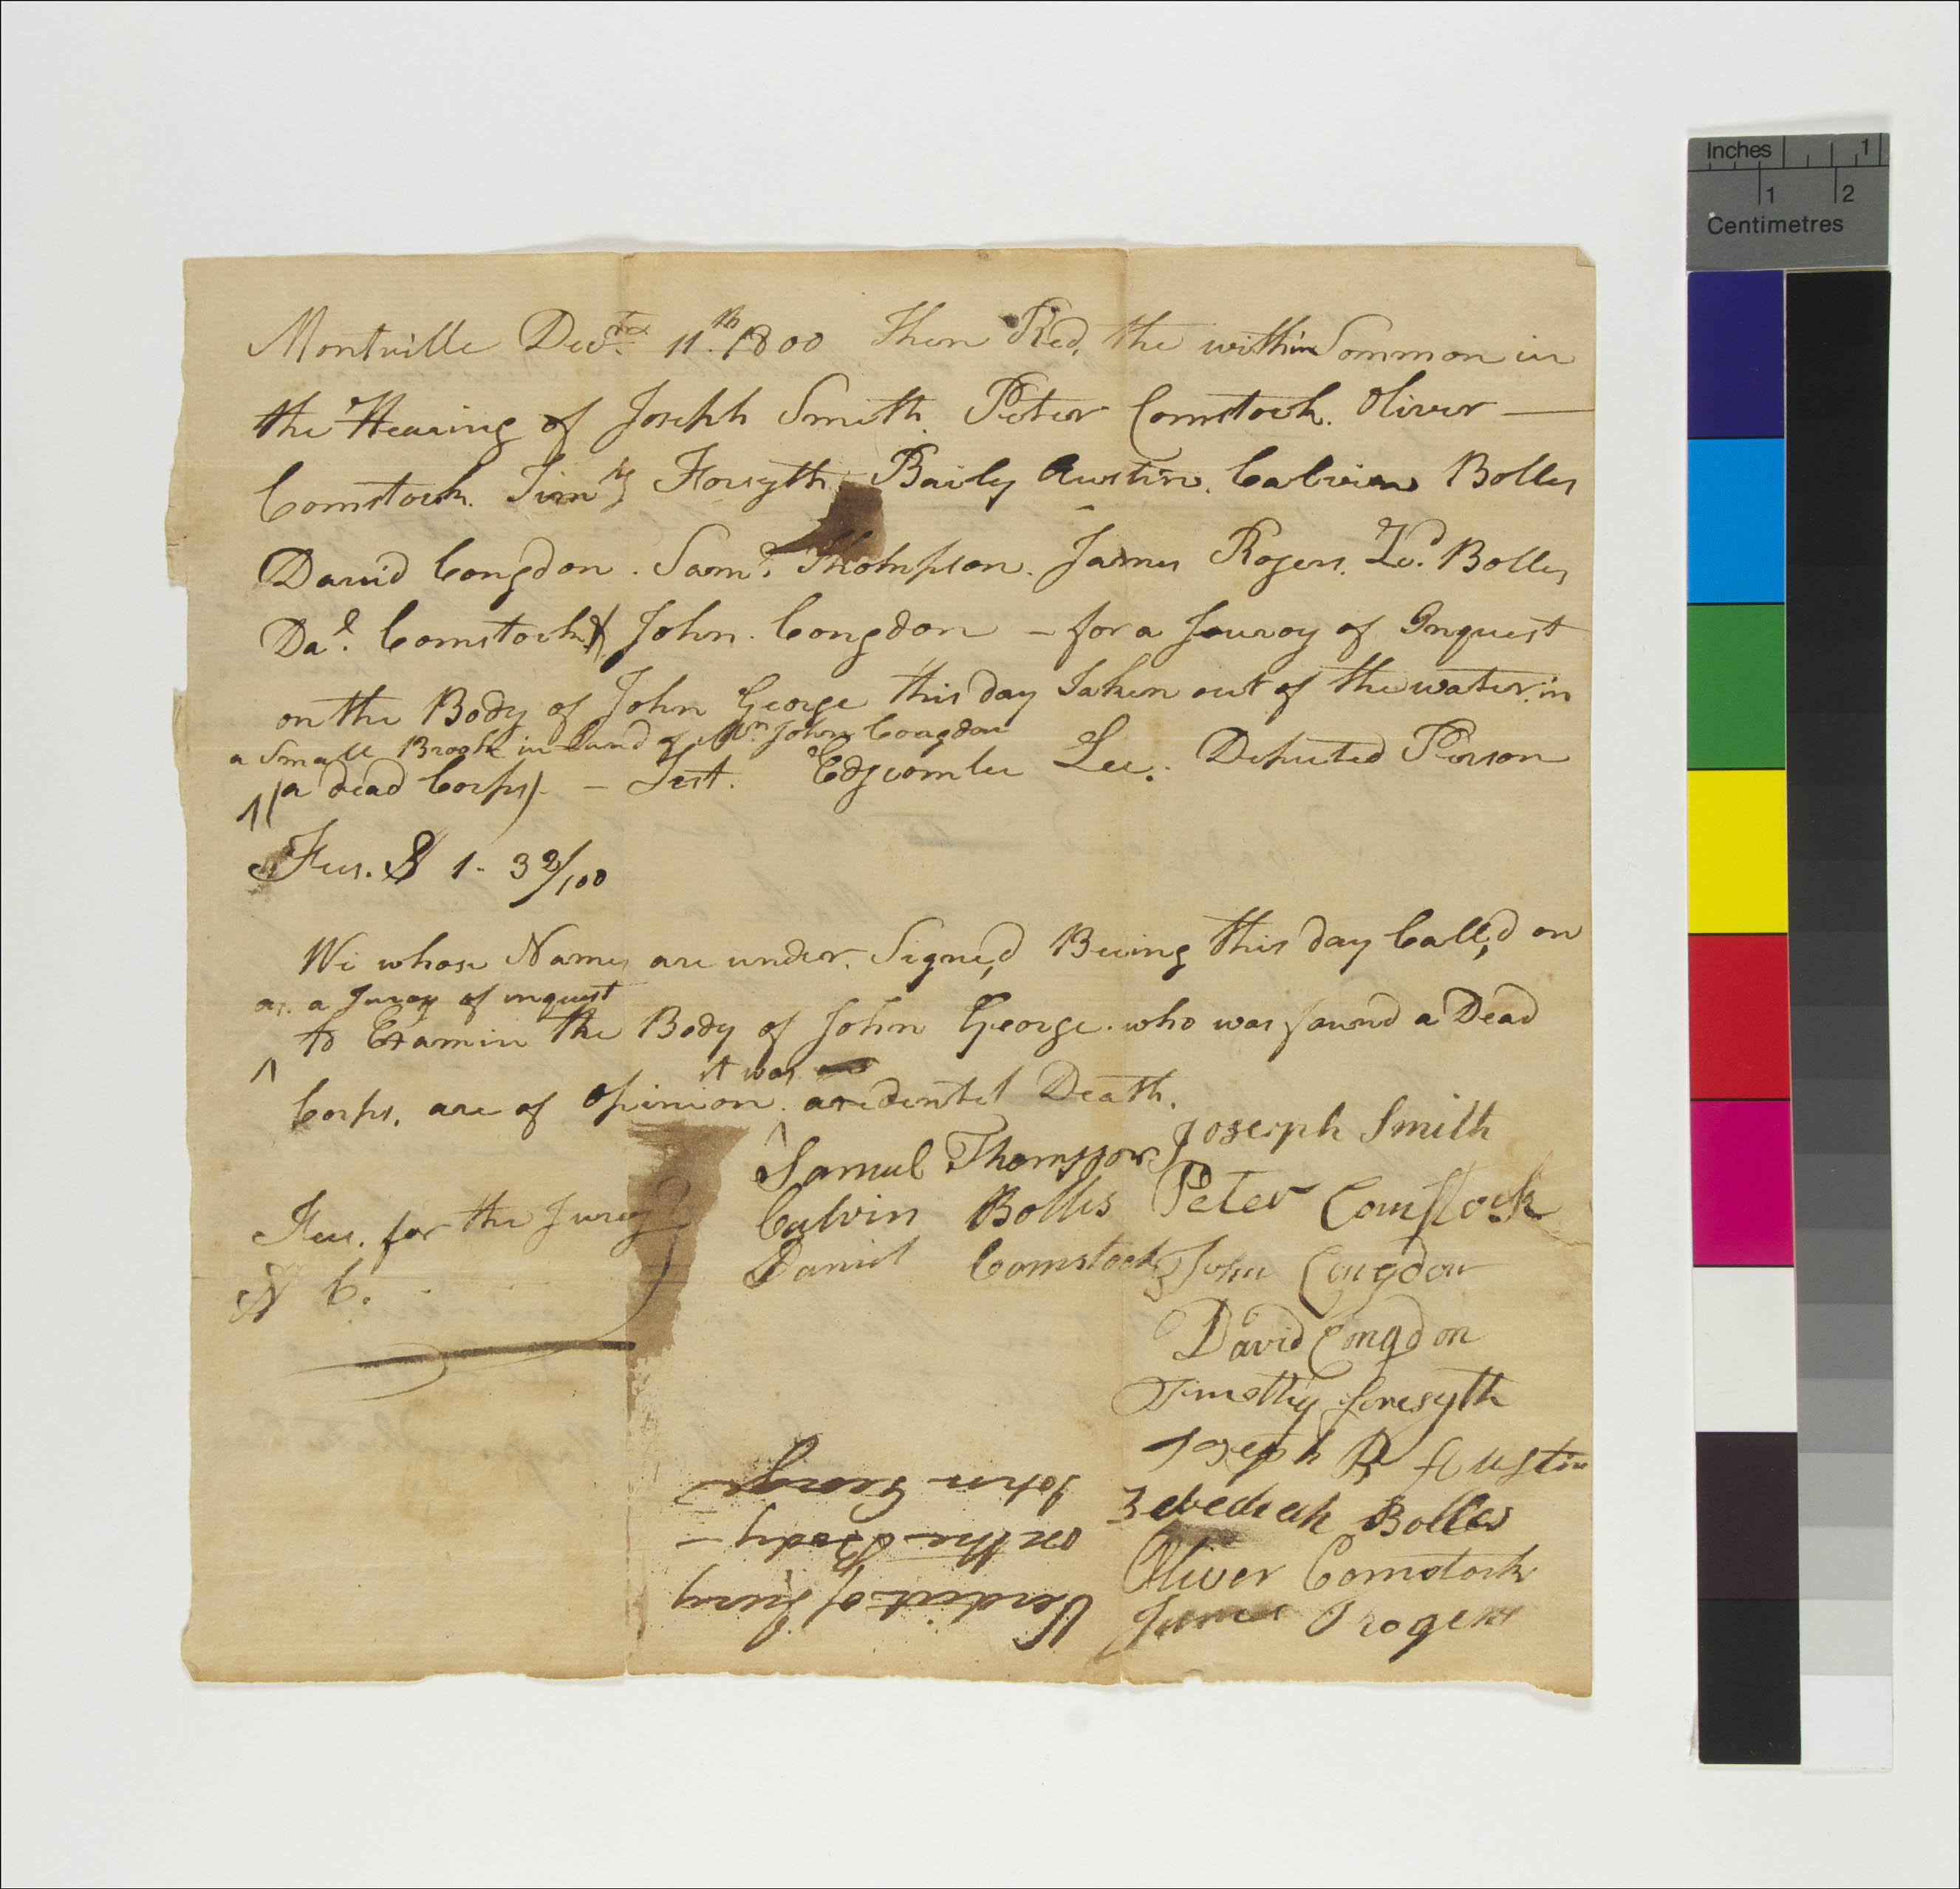 Montville Decr. 11th. 1800 Then Red, the within Sommon in
the Hearing of Joseph Smith. Peter Comstock. Oliver —
Comstock. Timy Forsyth Baily Austin. Calvin Bolles
David Congdon. Saml. Thompson. James Rogers. Zd. Bolles
Dal. Comstock & John. Congdon – for a Jouroy of Inquest
on the Body of John George this day taken out of the water in
a Small Brook in Land of Mr. John Congdon
^(a dead Corps) – Test. Edgcombe Lee. Deputed Person
Fees. $ 1. 32/100
We whose Names are under. Signe,d Being this day Call,d on
as. a Juroy of inquest
^ to Examin the Body of John George. who was found a Dead
it was
Corps, are of opinion. ^ axedentel Death.
Samuel Thompson Joseph Smith
Calvin Bolles Peter Comstock
Daniel Comstock John Congdon
Fees. for the Juroy
N C.
David Congdon
Timothy forsyth
Joseph B Austin
Zebediah Bolles
Oliver Comstock
James Rogers
Verdict of Jury
on the Body —
John George
Inches 1
1 2
Centimetres